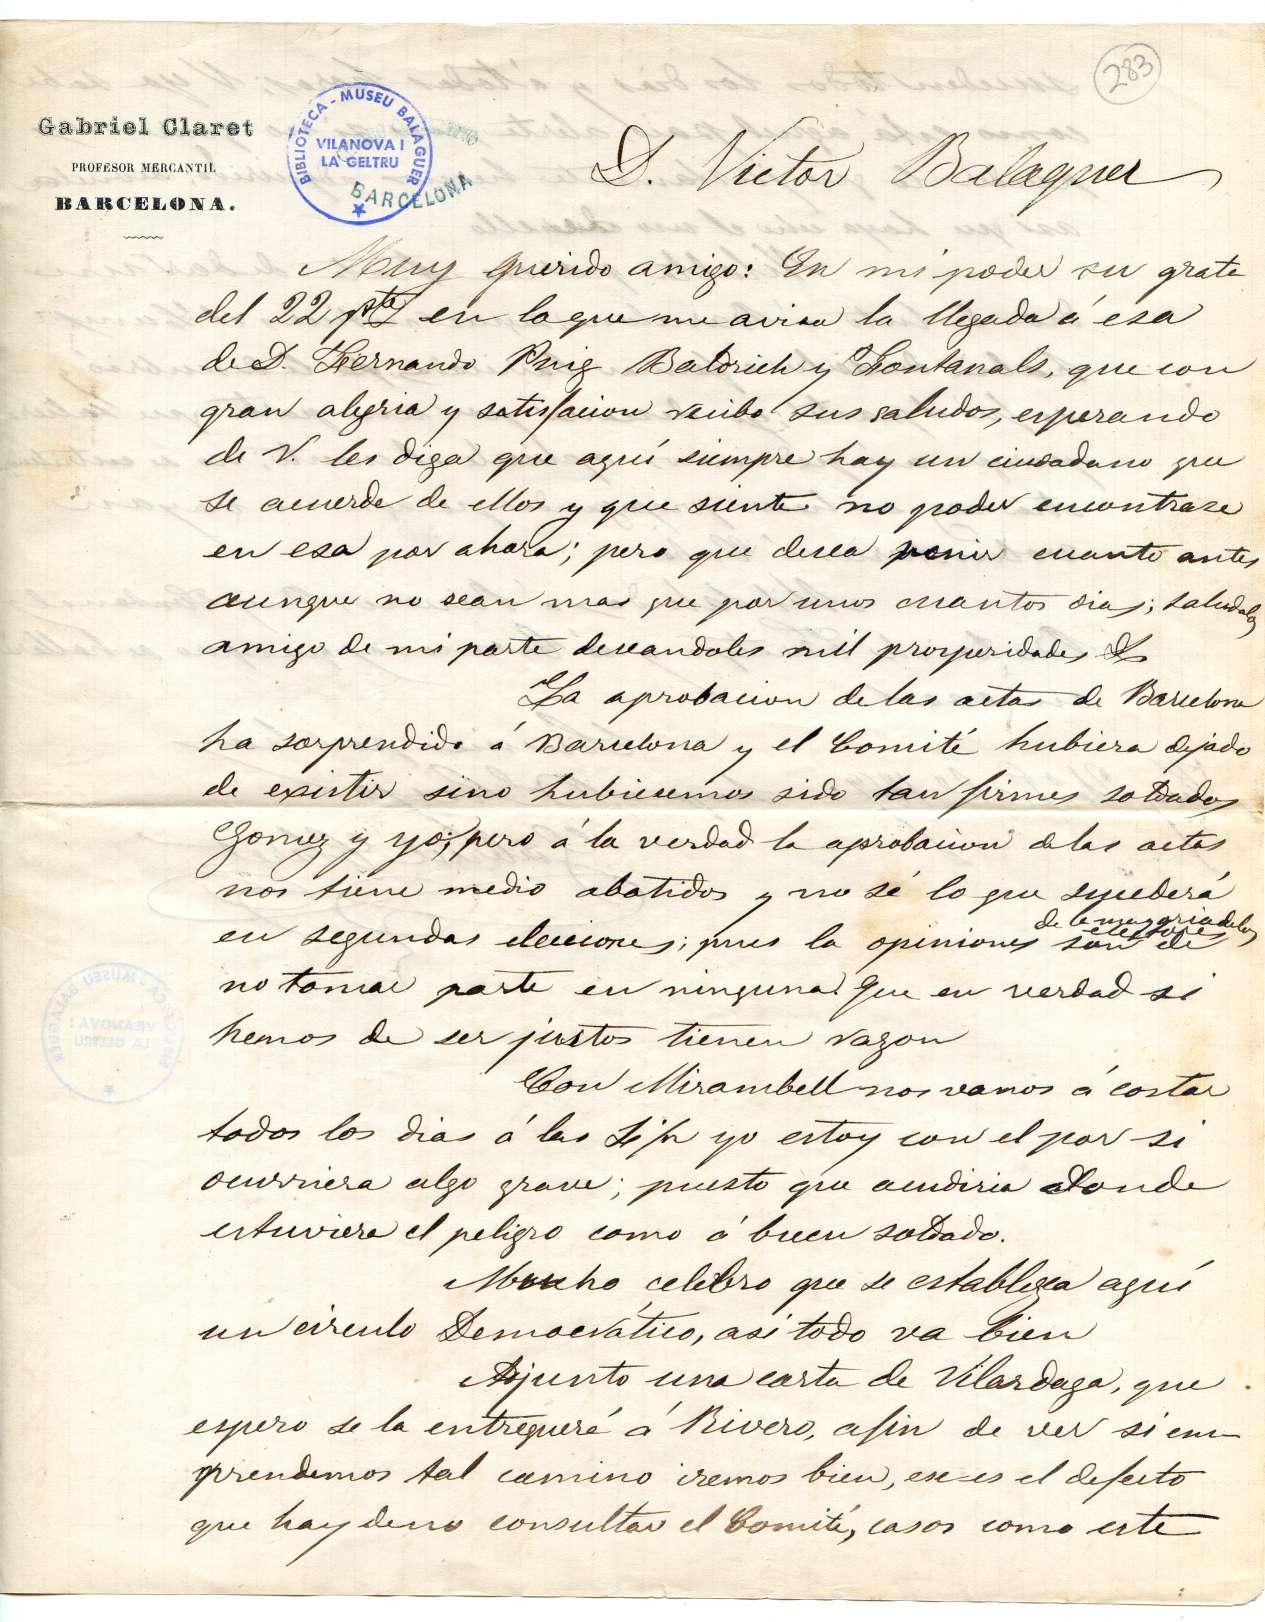 283
Gabriel Claret
PROFESOR MERCANTIL
BARCELONA.
BIBLIOTECA - MUSEU BALAGUER
VILANOVA I
LA GELTRU
BARCELONA
D. Victor Balaguer
Muy querido amigo: En mi poder su grata
del 22 pte en la que me avisa la llegada á esa
de D. Fernando Puig Baldrich y Fontanals, que con
gran alegria y satisfacion recibo sus saludos, esperando
de V. les diga que aquí siempre hay un ciudadano que
se acuerde de ellos y que siente no poder encontrase
en esa por ahora; pero que desea venir cuanto antes
aunque no sean mas que por unos cuantos dias; saludalos
amigo de mi parte deseandoles mil prosperidades
La aprobacion de las actas de Barcelona
ha sorprendido á Barcelona y el Comité hubiera dejado
de existir sino hubiesemos sido tan firmes soldados
Gomez y yo; pero á la verdad la aprobacion de las actas
nos tiene medio abatidos y no sé lo que sucederá
de la mayoria de los
electores
en segundas elecciones; pues la opiniones son de
no tomar parte en ninguna. Que en verdad si
hemos de ser justos tienen razon
Con Mirambell nos vamos á costar
todos los dias á las yo estoy con el por si
ocurriera algo grave; puesto que acudiria donde
estuviera el peligro como á buen soldado.
Mucho celebro que se establezca aquí
un circulo Democrático, asi todo va bien
Adjunto una carta de Vilardaga, que
espero se la entregueré á Rivero, afin de ver si em-
prendemos tal camino iremos bien, ese es el defecto
que hay deno consultar el Comité, casos como este